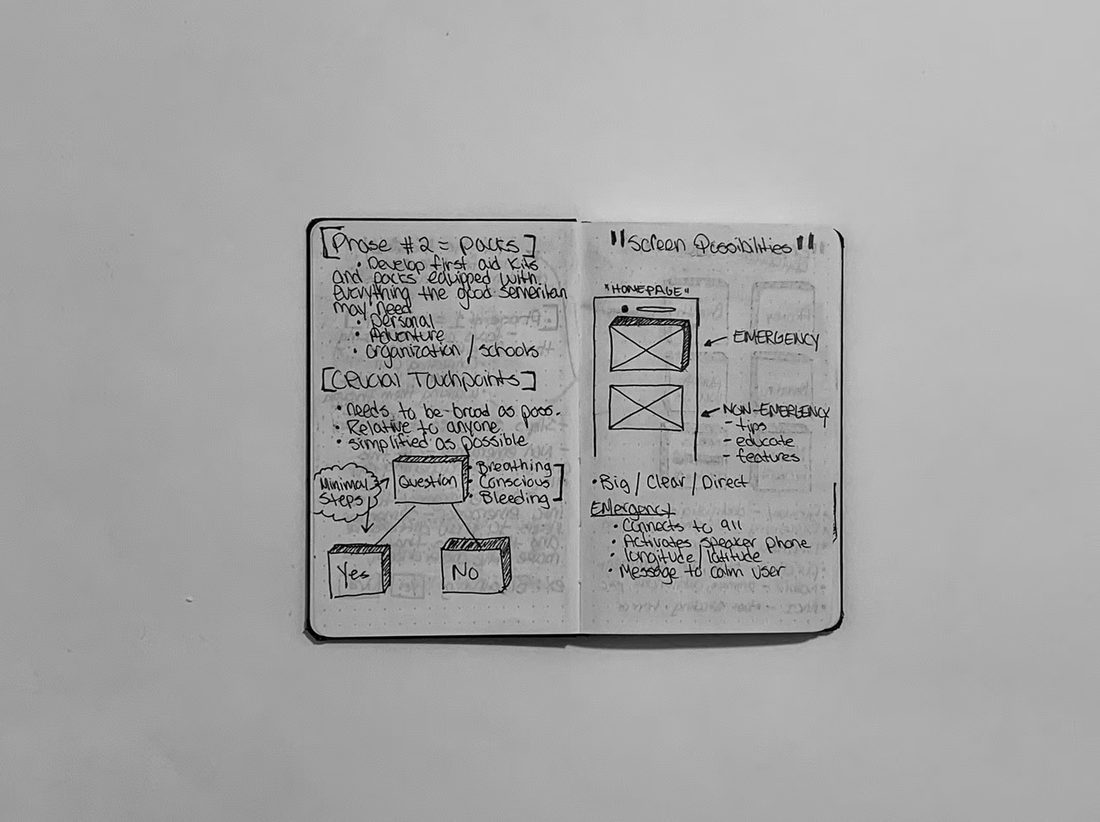 [Phase #2 = packs]
• Develop first aid kits
and packs equipped with
everything the good Semeritan
may need
• Personal
• Adventure
• organization / schools
[Crucial Touchpoints]
• needs to be broad as poss.
• Relative to anyone
• simplified as possible
Minimal
Steps
Question
• Breathing
• Conscious
• Bleeding
Yes
No
"Screen Possibilities"
"HOMEPAGE"
EMERGENCY
NON-EMERGENCY
- tips
- educate
- features
• Big / Clear / Direct
Emergency
• Connects to 911
• Activates speaker phone
• longitude / latitude
• Message to calm user